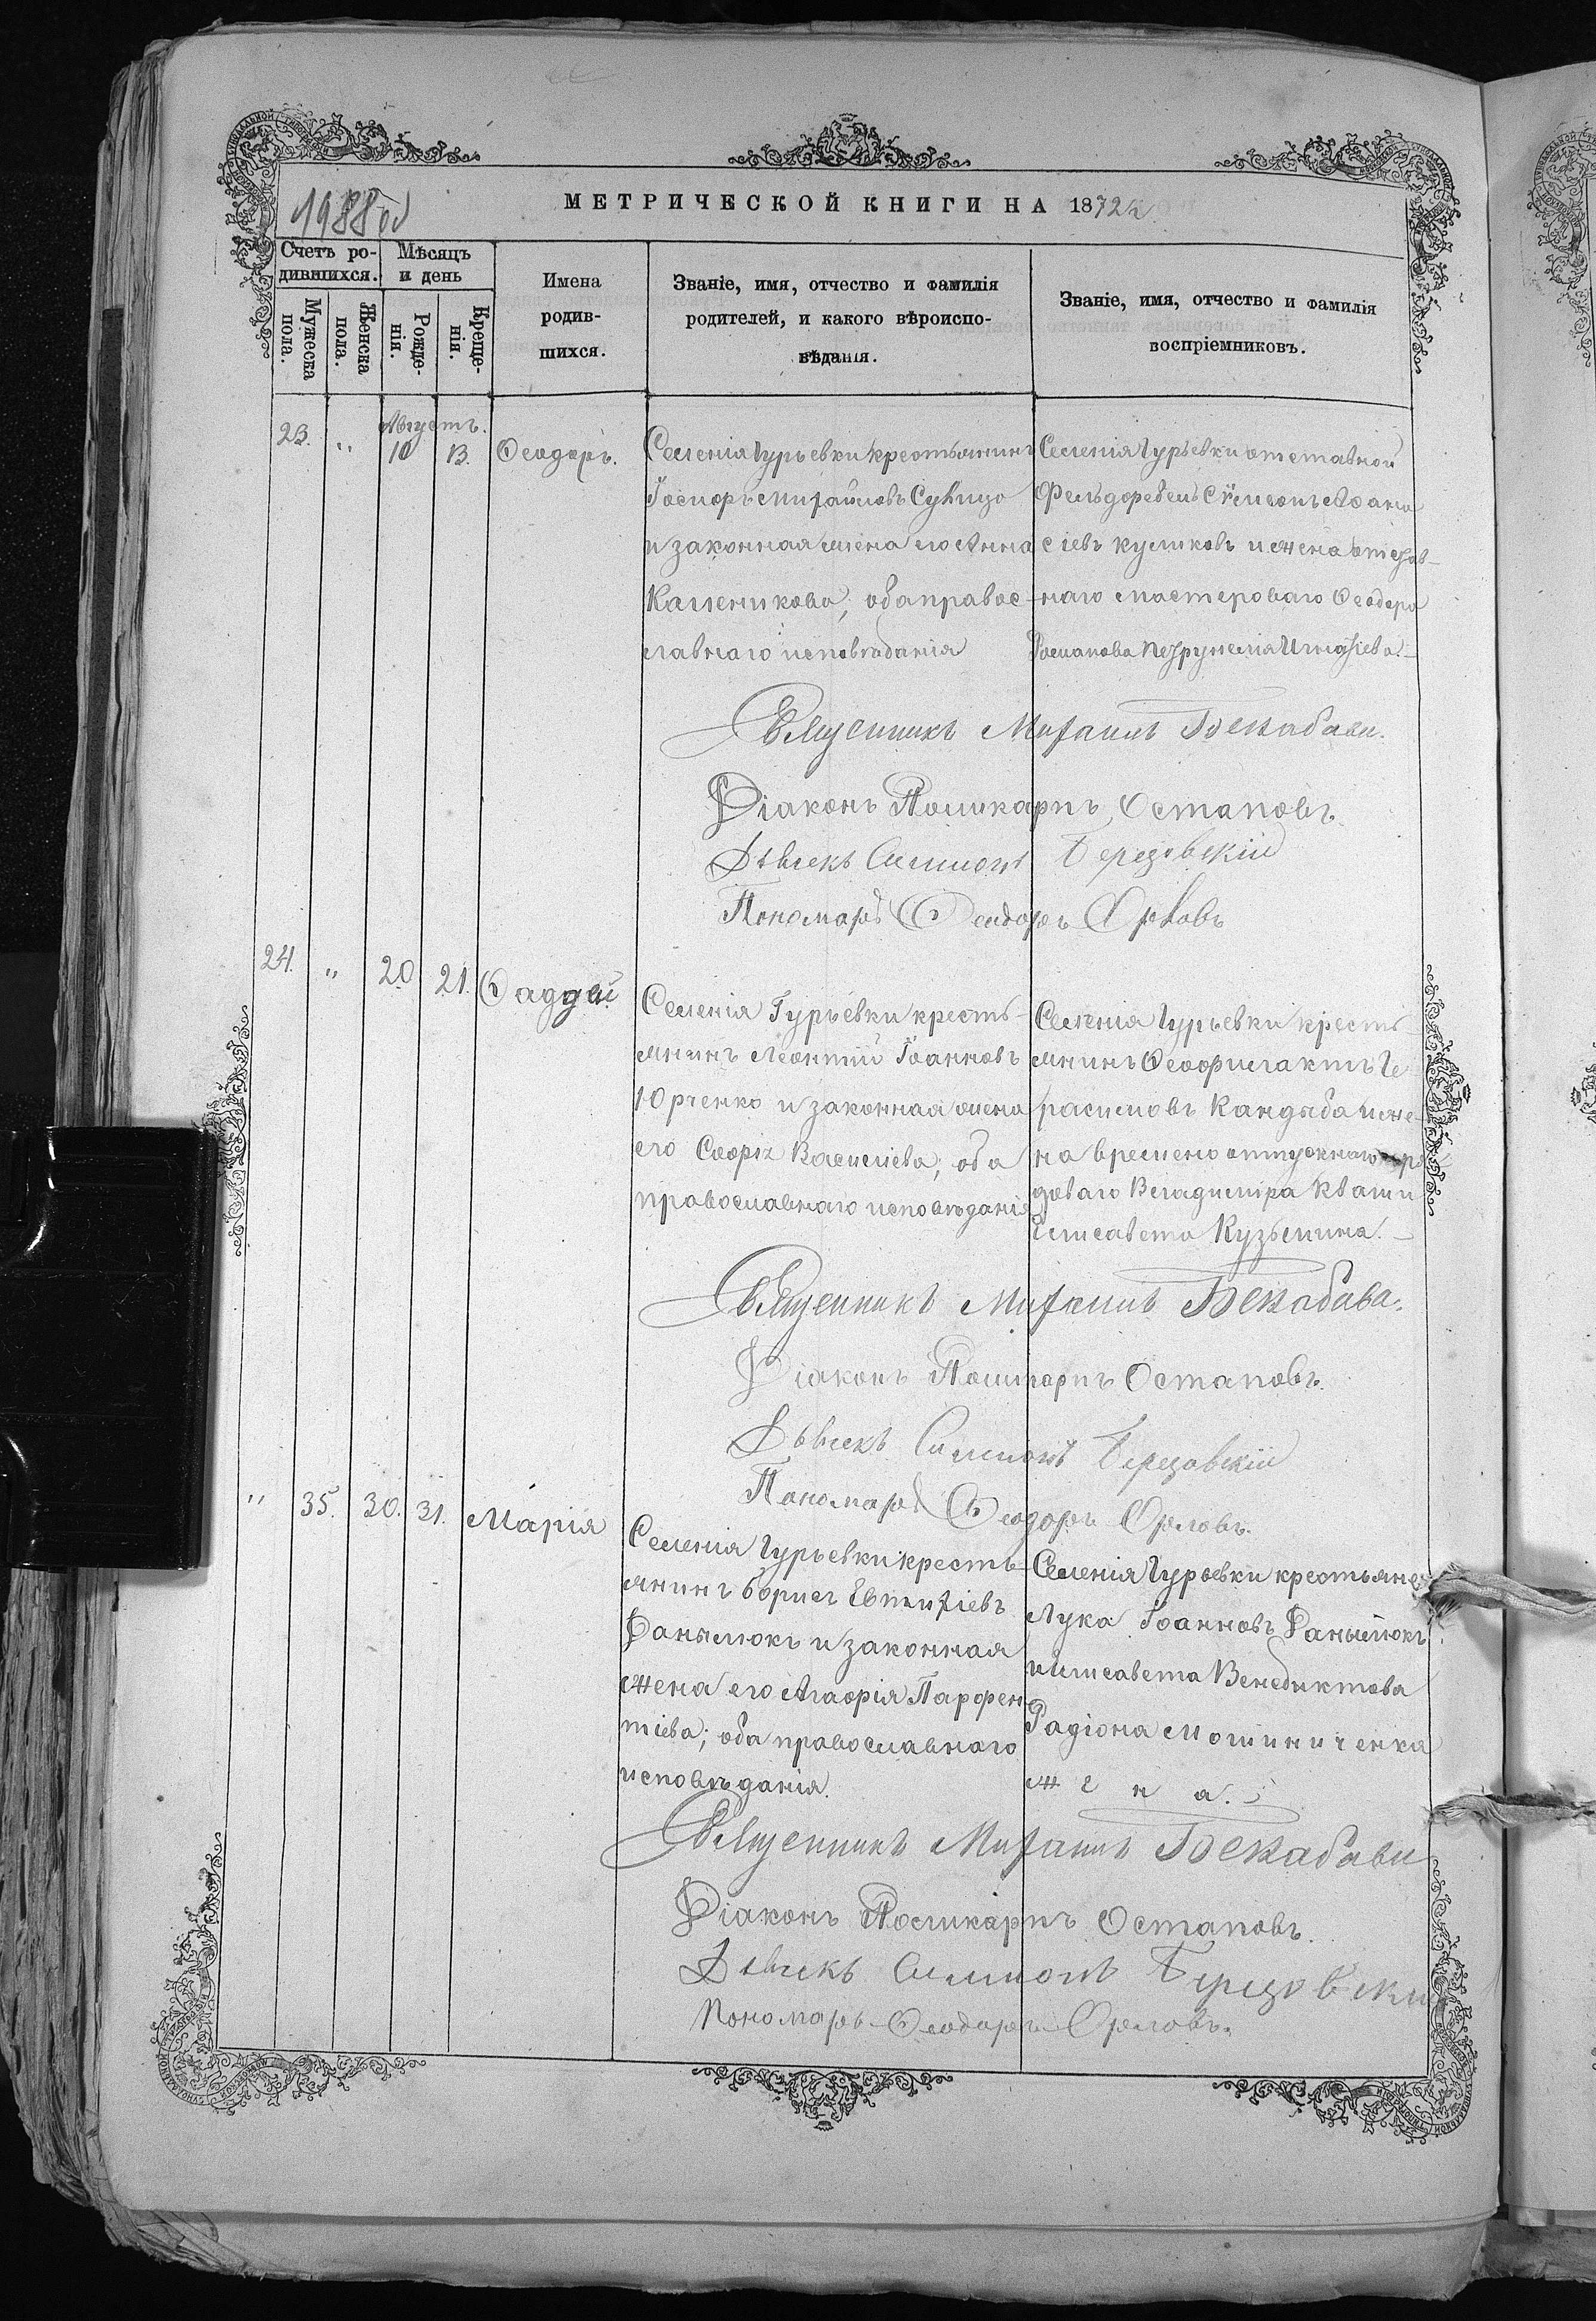 1988 об
МЕТРИЧЕСКОЙ КНИГИ НА 1872 г.
Счетъ родившихся.
Мужеска пола.
Женска пола.
Мѣсяцъ и день
Рожденія.
Крещенія.
Имена родившихся.
Званіе, имя, отчество и фамилія родителей, и какого вѣроисповѣданія.
Званіе, имя, отчество и фамилія воспріемниковъ.
Августъ.
23. " 10 13. Ѳеодоръ.
Селенія Гурьевки крестьянинъ
Михайловъ
и законная жена его Анна
обаправос-
лавнаго исповѣданія
Селенія Гурьевки отставной
Фельдфебель Сѵмеонъ Аѳана
сіевъ Куликовъ и жена отстав-
наго мастероваго Ѳеодора
Игнатіева.
Священникъ Михаилъ
Діаконъ Поликарпъ Остаповъ.
Дьячекъ Симеонъ Березовскій
Пономарь Ѳеодоръ Орловъ
24. " 20 21. Ѳаддей
Селенія Гурьевки кресть-
янинъ Леонтій Іоанновъ
Юрченко и законная жена
его Софія Василіева; оба
православнаго исповѣданія
Селенія Гурьевки кресть-
янинъ Ѳеофилактъ Ге
расимовъ Кандыба и же-
на времено отпускнаго ря
доваго Владиміра Кваши
Елисавета Кузьмина.
Священникъ Михаилъ
Діаконъ Поликарпъ Остаповъ.
Дьячекъ Симеонъ Березовскій
Пономарь Ѳеодоръ Орловъ.
" 35. 30. 31. Марія
Селенія Гурьевки кресть-
янинъ Борисъ Евтихіевъ
Данылюкъ и законная
жена его Агафія Парфен
тіева; оба православнаго
исповѣданія.
Селенія Гурьевки крестьяне
Лука Іоанновъ Данылюкъ
и Елисавета Венедиктова
Радіона Мошниченка
жена.
Священникъ Михаилъ
Діаконъ Поликарпъ Остаповъ.
Дьячекъ Симеонъ Березовскій
Пономарь Ѳеодоръ Орловъ.